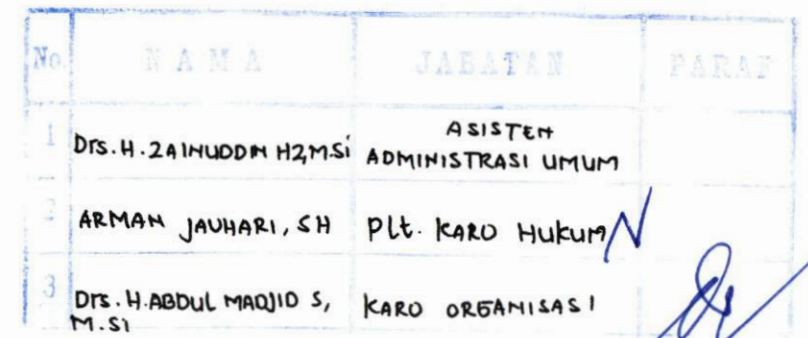 No. NAMA JABATAN PARAF
1 Drs. H. ZAINUDDIN HZ, M.Si ASISTEN
ADMINISTRASI UMUM
2 ARMAN JAUHARI, SH Plt. KARO HUKUM
3 Drs. H. ABDUL MADJID S, KARO ORGANISASI
M.Si